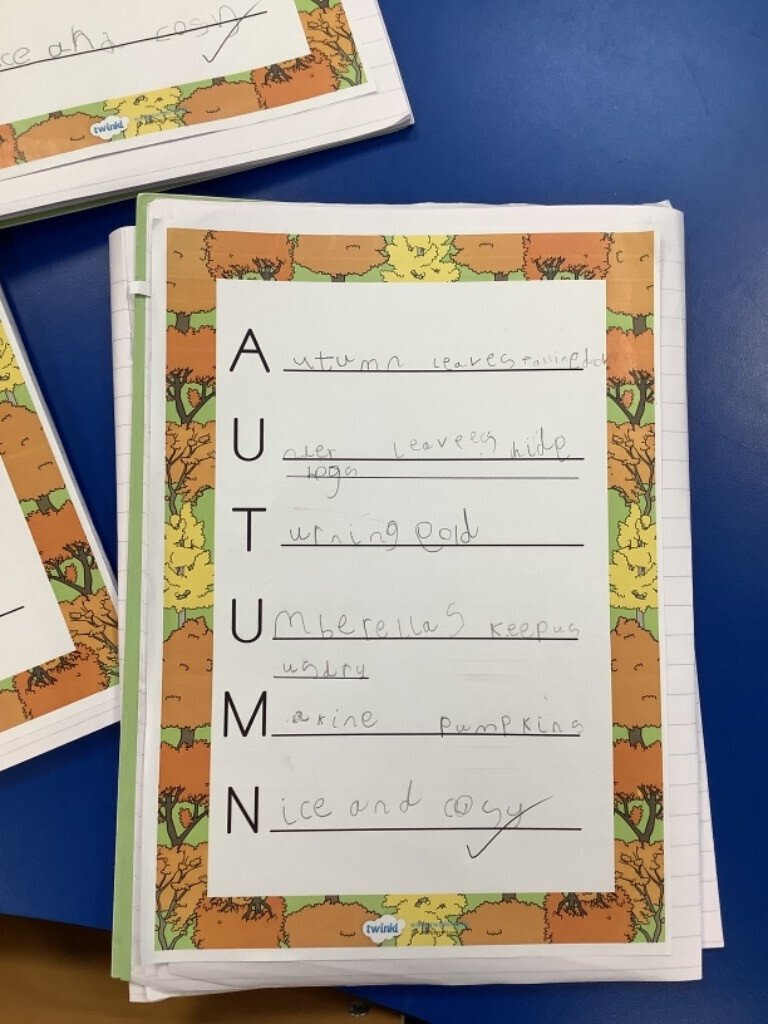 ice and cosy
twinkl
Autumn leaves falling do
Unter leavees hide
hogs
Turning gold
Umberellas keepus
usdry
Makine pumpkins
Nice and cosy
twinkl